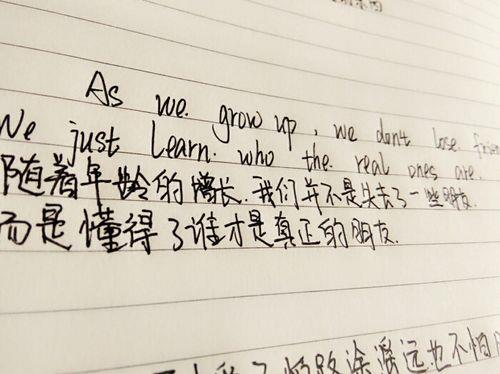 As we grow up, we don't lose
We just learn who the real ones are.
随着年龄的增长.我们并不是失去了一些朋友
而是懂得了谁才是真正的朋友.
路途遥远也不怕